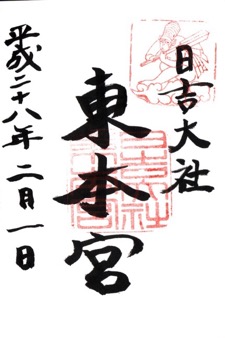 日吉大社
東本宮
平成二十八年二月一日